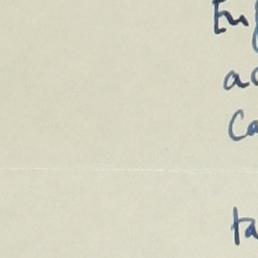 Eng
ac
Ca
ta